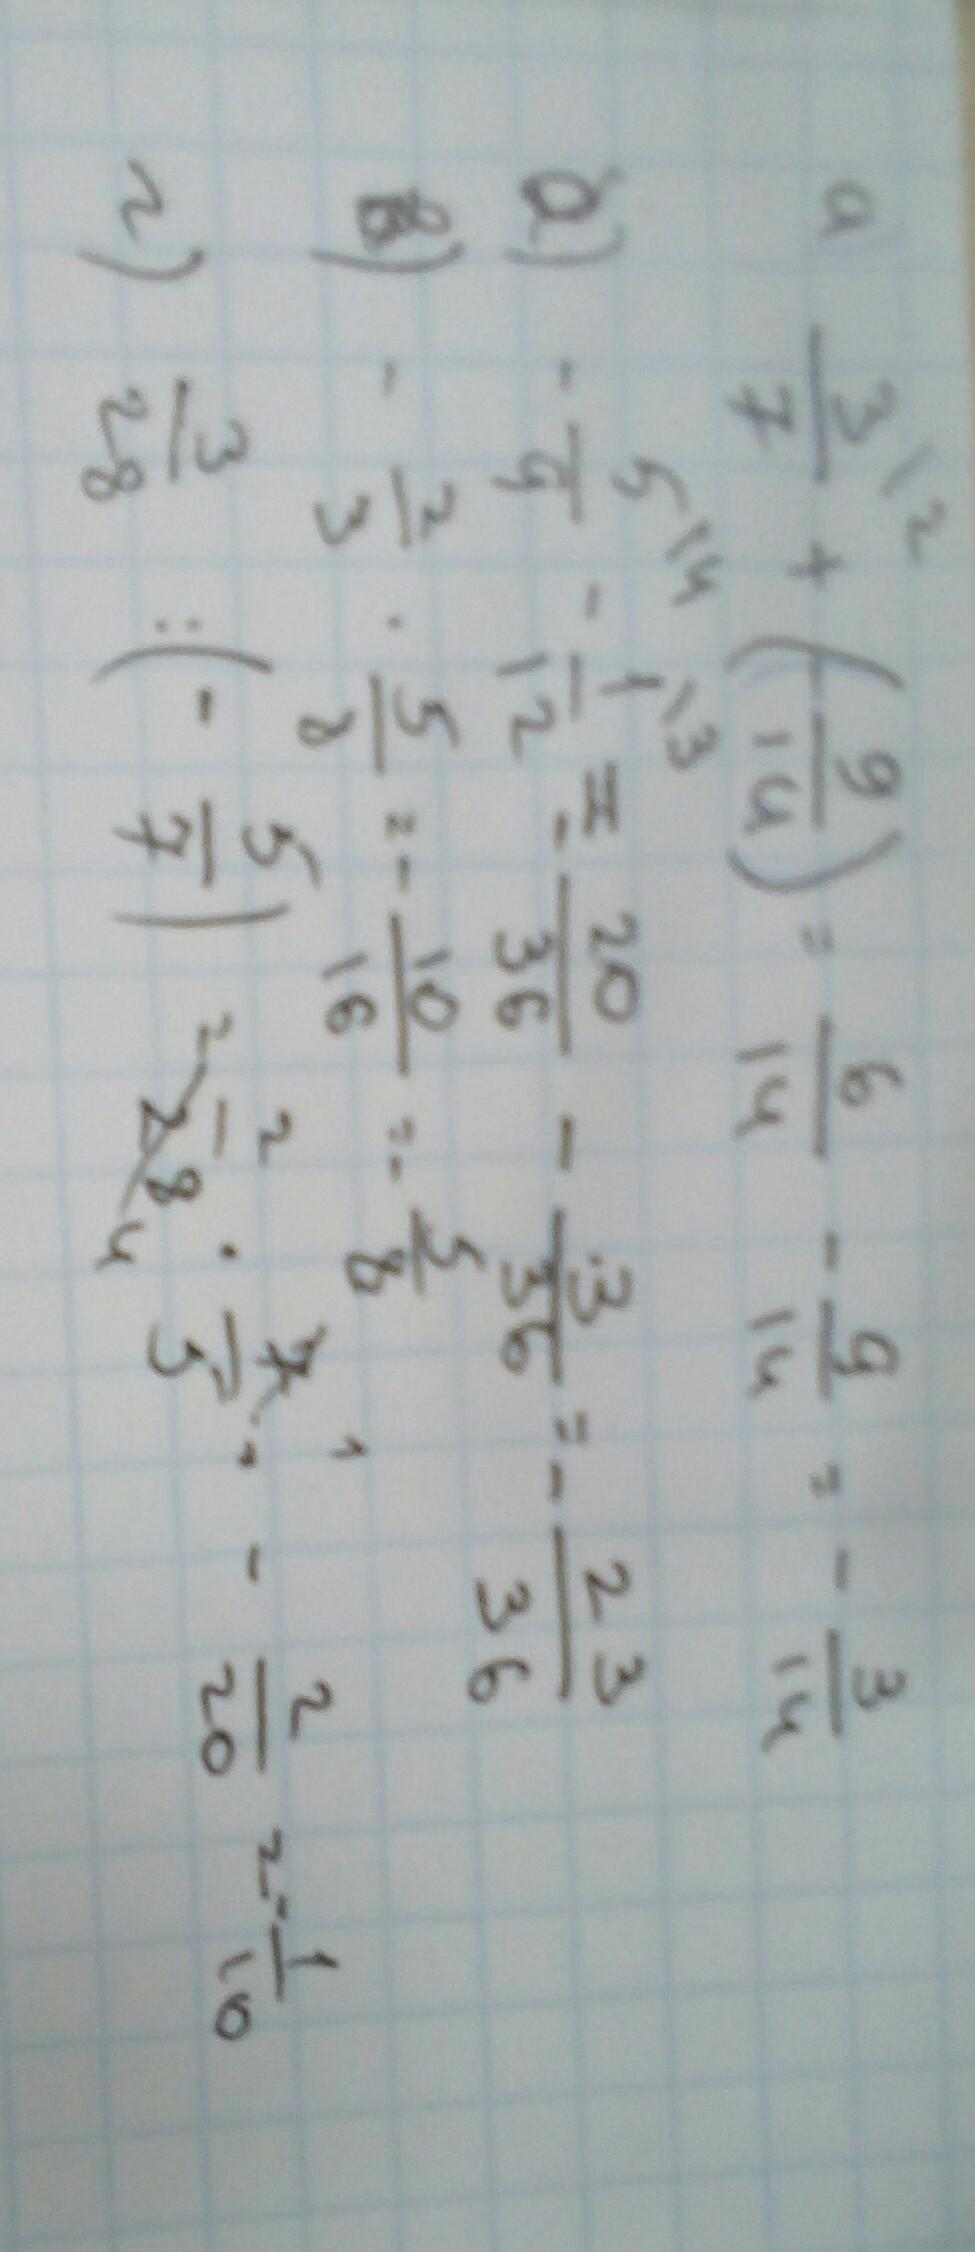 а 3/7 \2 + (9/14) = 6/14 - 9/14 = - 3/14
а) - 5/9 \4 - 1/12 \3 = - 20/36 - 3/36 = - 23/36
в) - 2/3 · 5/8 = - 10/16 = - 5/8
г) 3/28 : (- 5/7) = - 2/28 4 · 7/5 1 = - 2/20 = - 1/10